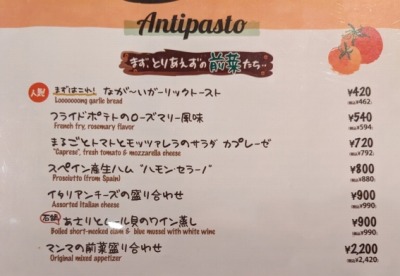 Antipasto
まず、とりあえずの前菜たち…
人気! まずはコレ! なが〜いガーリックトースト ¥420
Looooooong garlic bread 税込¥462
フライドポテトのローズマリー風味 ¥540
French fry, rosemary flavor 税込¥594
まるごとトマトとモッツァレラのサラダ カプレーゼ ¥720
"Caprese", fresh tomato & mozzarella cheese 税込¥792
スペイン産生ハム "ハモン セラーノ" ¥800
Prosciutto (from Spain) 税込¥880
イタリアンチーズの盛り合わせ ¥900
Assorted Italian cheese 税込¥990
石鍋 あさりとムール貝のワイン蒸し ¥900
Boiled short-necked clam & blue mussel with white wine 税込¥990
マンマの前菜盛り合わせ ¥2,200
Original mixed appetizer 税込¥2,420